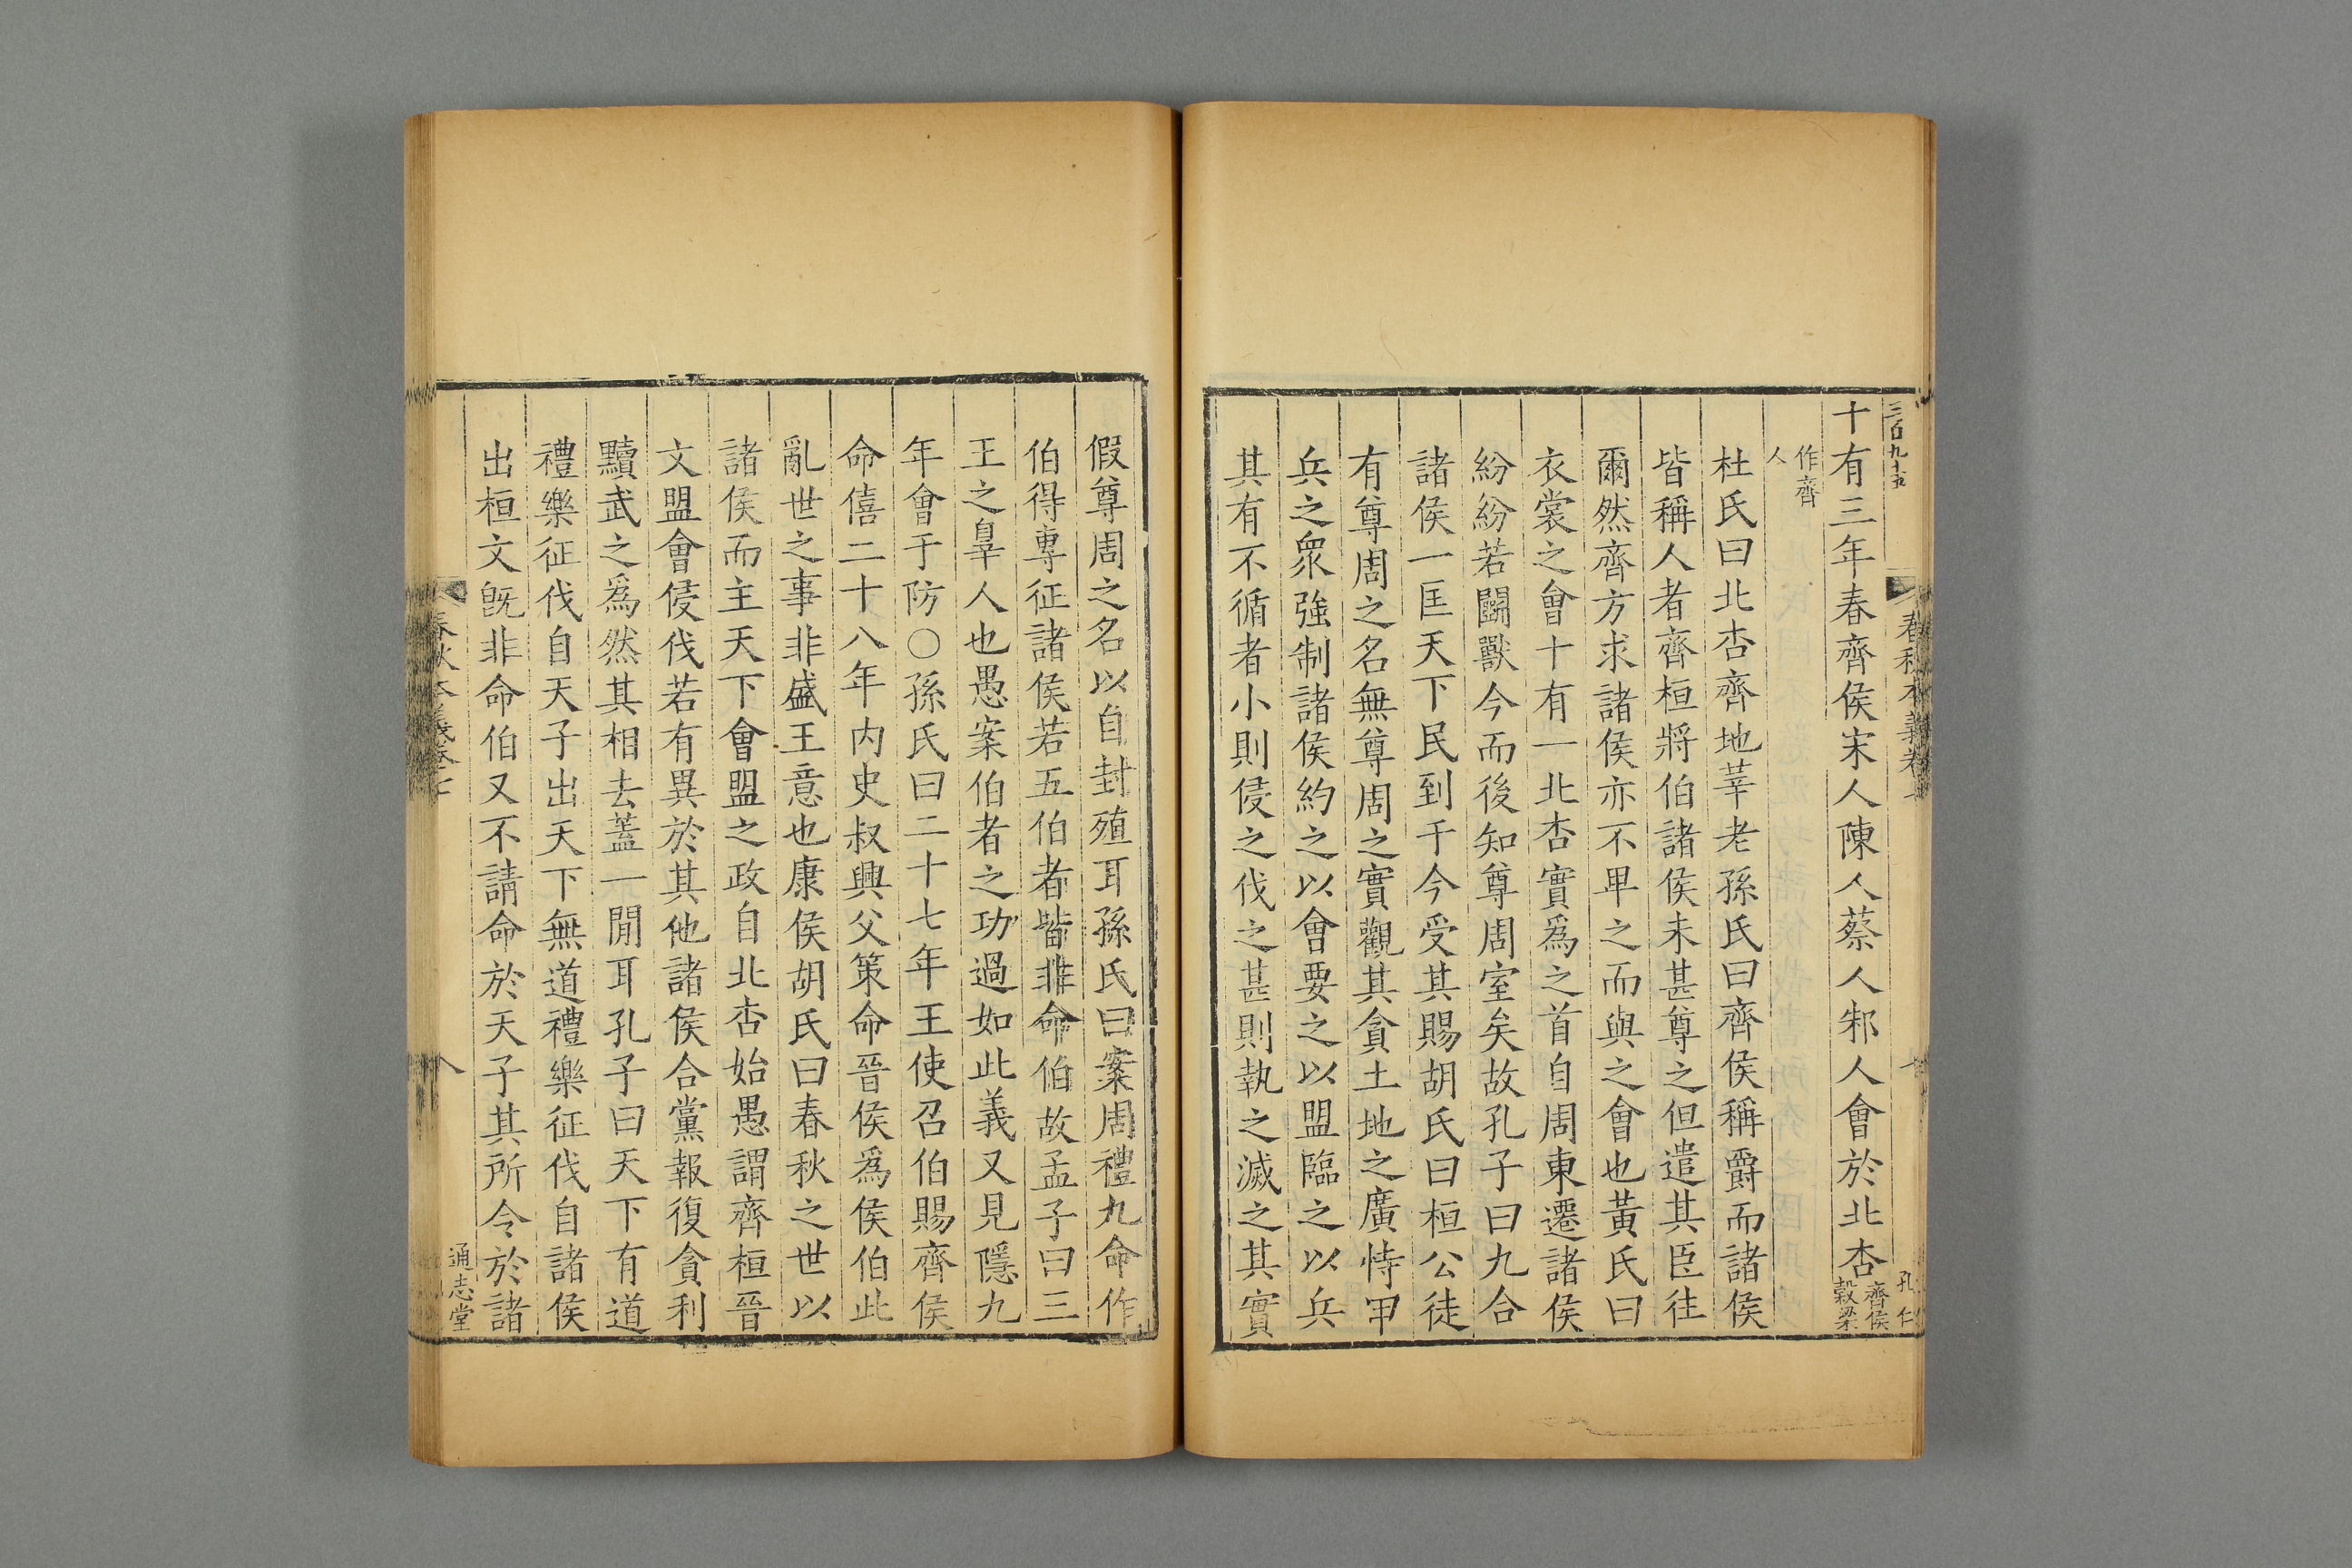 三百九十五
春秋本義卷
孔 仁
十有三年春齊侯宋人陳人蔡人邾人會於北杏齊侯穀梁
作齊人
杜氏曰北杏齊地莘老孫氏曰齊侯稱爵而諸侯
皆稱人者齊桓將伯諸侯未甚尊之但遣其臣往
爾然齊方求諸侯亦不卑之而與之會也黃氏曰
衣裳之會十有一北杏實爲之首自周東遷諸侯
紛紛若鬭獸今而後知尊周室矣故孔子曰九合
諸侯一匡天下民到于今受其賜胡氏曰桓公徒
有尊周之名無尊周之實觀其貪土地之廣恃甲
兵之衆強制諸侯約之以會要之以盟臨之以兵
其有不循者小則侵之伐之甚則執之滅之其實
假尊周之名以自封殖耳孫氏曰案周禮九命作
伯得專征諸侯若五伯者皆非命伯故孟子曰三
王之辠人也愚案伯者之功過如此義又見隱九
年會于防○孫氏曰二十七年王使召伯賜齊侯
命僖二十八年内史叔興父策命晉侯爲侯伯此
亂世之事非盛王意也康侯胡氏曰春秋之世以
諸侯而主天下會盟之政自北杏始愚謂齊桓晉
文盟會侵伐若有異於其他諸侯合黨報復貪利
黷武之爲然其相去蓋一閒耳孔子曰天下有道
禮樂征伐自天子出天下無道禮樂征伐自諸侯
出桓文旣非命伯又不請命於天子其所令於諸
春秋本義卷七
八
通志堂